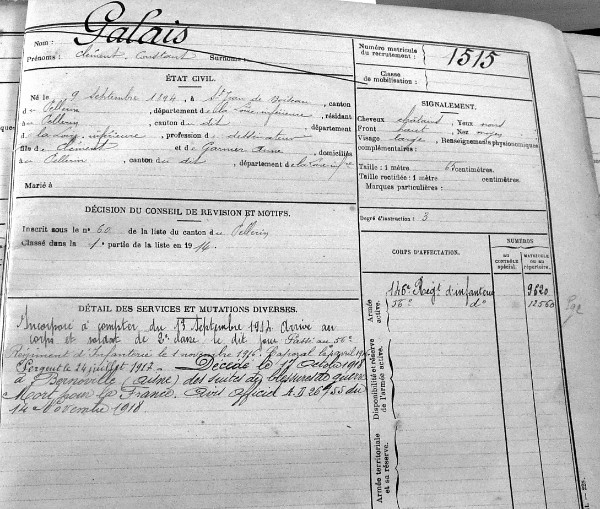 Nom : Galais
Prénoms : Clément Constant Surnoms :
Numéro matricule du recrutement : 1515
Classe de mobilisation :
ÉTAT CIVIL.
Né le 9 Septembre 1894, à St Jean de Boiseau, canton
de Pellerin, département de la Loire inférieure, résidant
au Pellerin, canton du dit, département
de la Loire inférieure, profession de dessinateur
fils de Clément et de Garnier Anne domiciliés
au Pellerin, canton du dit, département de la Loire infre
Marié à
SIGNALEMENT.
Cheveux châtains Yeux
Front haut Nez moyen
Visage large Renseignements physionomiques
complémentaires :
Taille : 1 mètre 65 centimètres.
Taille rectifiée : 1 mètre centimètres.
Marques particulières :
Degré d'instruction : 3
DÉCISION DU CONSEIL DE REVISION ET MOTIFS.
Inscrit sous le n° 60 de la liste du canton du Pellerin
Classé dans la 1e partie de la liste en 1914
CORPS D'AFFECTATION.
NUMÉROS
AU CONTRÔLE spécial.
MATRICULE OU AU répertoire.
Armée active.
146e Régt d'infanterie 9620
56e do 12560
Disponibilité et réserve de l'armée active.
Armée territoriale et sa réserve.
DÉTAIL DES SERVICES ET MUTATIONS DIVERSES.
Incorporé à compter du 13 Septembre 1914. Arrivé au
corps et soldat de 2e classe le dit jour. Passé au 56e
Régiment d'Infanterie le 1 novembre 1916. Caporal le avril
Sergent le 24 juillet 1917. — Décédé le octobre 1918
à Bernoville (Aisne) des suites de blessures de guerre
Mort pour la France. Avis officiel A.D. 26 55 du
14 Novembre 1918